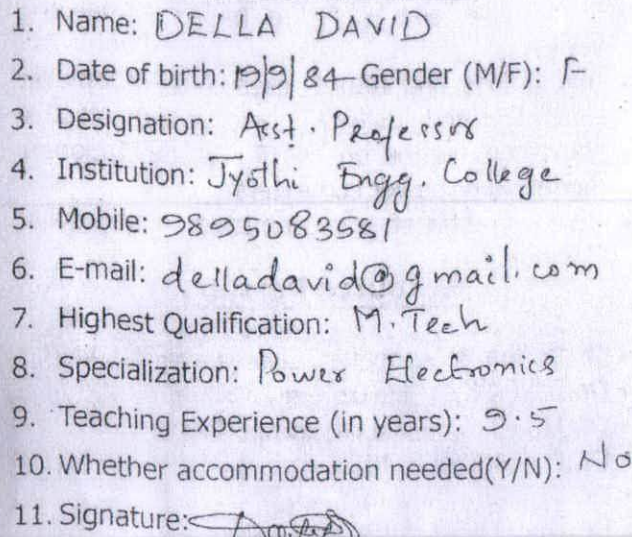 1. Name: DELLA DAVID
2. Date of birth: 19/9/84 Gender (M/F): F
3. Designation: Asst. Professor
4. Institution: Jyothi Engg. College
5. Mobile: 9895083581
6. E-mail: delladavid@gmail.com
7. Highest Qualification: M.Tech
8. Specialization: Power Electronics
9. Teaching Experience (in years): 9.5
10. Whether accommodation needed(Y/N): No
11. Signature: